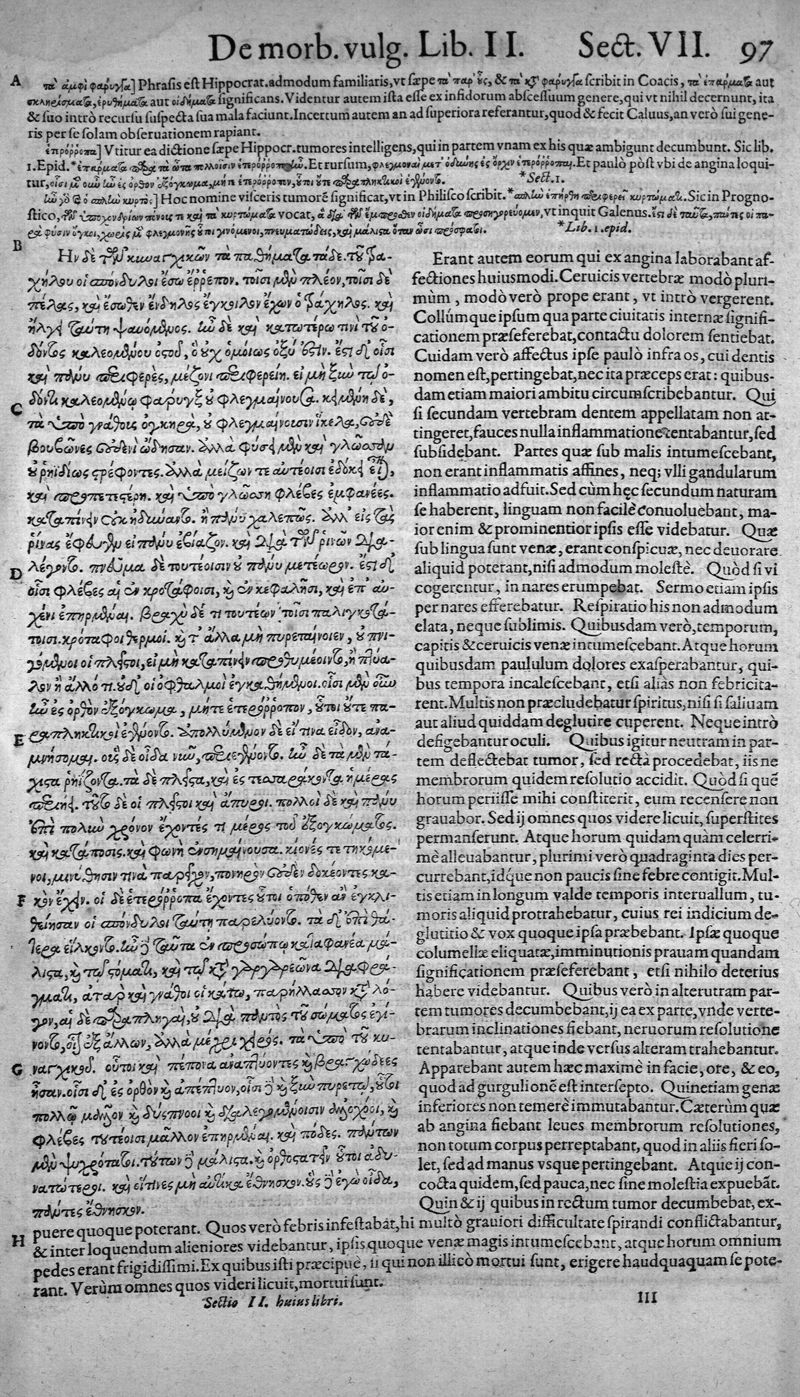 De morb. vulg. Lib. II. Sect. VII. 97
A
τὰ ἀμφὶ φάρυγγα] Phrasis est Hippocrat. admodum familiaris, vt sæpe & scribit in Coacis, τὰ ἐπάρματα aut
aut οἰδήματα significans. Videntur autem ista esse ex infidorum abscessuum genere, qui vt nihil decernunt, ita
& suo intrò recursu suspecta sua mala faciunt. Incertum autem an ad superiora referantur, quod & fecit Caluus, an verò sui gene-
ris per se solam obseruationem rapiant.
ἐπιρρόποι] Vtitur ea dictione sæpe Hippocr. tumores intelligens, qui in partem vnam ex his quæ ambigunt decumbunt. Sic lib.
1. Epid. * Et rursum, Et paulò pòst vbi de angina loqui-
tur, * Sect. 1.
] Hoc nomine visceris tumorē significat, vt in Philisco scribit. * Sic in Progno-
stico, vocat, vt inquit Galenus.
* Lib. 1. epid.
B
Ην δὲ τῶν κυναγχικῶν τὰ παθήματα τάδε. τοῦ τρα-
χήλου οἱ σπόνδυλοι ἔσω ἔρρεπον. τοῖσι μὲν πλέον, τοῖσι δὲ
καὶ ἔσωθεν ἔνδηλος ἔγκοιλον ἔχων ὁ τράχηλος. καὶ
ἤλγει ταύτῃ ψαυόμενος. ἦν δὲ καὶ κατωτέρω τινὶ τοῦ ὀ-
δόντος καλεομένου ὀστοῦ, ὃ οὐχ ὁμοίως ὀξύ ἐστιν. ἔστι δ' οἷσι
καὶ πάνυ περιφερές, μέζονι περιφερείῃ. εἰ μὴ ξὺν τῷ ὀ-
δόντι καλεομένῳ φάρυγξ οὐ φλεγμαίνουσα. κειμένη δέ,
C
τὰ ὑπὸ γνάθους ὀγκηρὰ, οὐ φλεγμαίνουσιν ἴκελα, οὐδὲ
βουβῶνες οὐδενὶ ᾤδησαν. ἀλλὰ φύσει μὲν καὶ γλῶσσαν
οὐ ῥηϊδίως στρέφοντες. ἀλλὰ μείζων τε αὐτέοισι ἐδόκει εἶναι,
καὶ προπετεστέρη. καὶ ὑπὸ γλώσσῃ φλέβες ἐμφανέες.
καταπίνειν οὐκ ἠδύναντο. ἢ πάνυ χαλεπῶς. ἀλλ' εἰς τὰς
ῥῖνας ἔφευγεν εἰ πάνυ ἐβιάζον. καὶ διὰ τῶν ῥινῶν διε-
λέγοντο. πνεῦμα δὲ τουτέοισιν οὐ πάνυ μετέωρον. ἔστι δ'
D
οἷσι φλέβες αἱ ἐν κροτάφοισι, καὶ ἐν κεφαλῆσι, καὶ ἐπ' αὐ-
χένι ἐπηρμέναι. βραχὺ δέ τι τουτέων τοῖσι παλιγκοτώ-
τοισι. κρόταφοι θερμοί. καὶ τ' ἄλλα μὴ πυρεταίνοιεν, οὐ πνι-
γόμενοι οἱ πλεῖστοι, εἰ μὴ καταπίνειν προθυμέοιντο, ἢ πτύα-
λον ἢ ἄλλο τι. οὐδ' οἱ ὀφθαλμοὶ ἐγκαθήμενοι. οἷσι μὲν οὖν
ἦν ἐς ὀρθὸν ἐξόγκωμα, μήτε ἑτερόρροπον, οὗτοι οὔτε πα-
ραπληκτικοὶ ἐγένοντο. ἀπολλύμενον δὲ εἴ τινα εἶδον, ἀνα-
E
μνήσομαι. οὓς δὲ οἶδα νῦν, περιεγένοντο. ἦν δὲ τὰ μὲν τά-
χιστα ῥηΐζοντα. τὰ δὲ πλεῖστα, καὶ ἐς τεσσαράκοντα ἡμέρας
περιῄει. τοῦτο δὲ οἱ πλεῖστοι καὶ ἄπυροι. πολλοὶ δὲ καὶ πάνυ
ἐπὶ πολὺν χρόνον ἔχοντές τι μέρος τοῦ ἐξογκώματος.
καὶ κατάποσις. καὶ φωνὴ ἐνσημαίνουσα. κίονές τε τηκόμε-
νοι, μινύθησίν τινα παρεῖχον, πονηρὸν οὐδὲν δοκέοντες κα-
F
κὸν ἔχειν. οἱ δὲ ἑτερόρροπα ἔχοντες οὗτοι ὁπόθεν ἂν ἐγκλι-
θείησαν οἱ σπόνδυλοι ταύτῃ παρελύοντο. τὰ δ' ἐπὶ θά-
τερα εἵλκοντο. ἦν δὲ ταῦτα ἐν προσώπῳ καταφανέα μά-
λιστα, καὶ τῷ στόματι, καὶ τῷ κατὰ γαργαρεῶνα διαφρά-
γματι, ἀτὰρ καὶ γνάθοι οἱ κάτω, παρήλλασσον κατὰ λό-
γον, αἱ δὲ παραπληγίαι, οὐ διὰ παντὸς τοῦ σώματος ἐγί-
νοντο, ἐξ ἄλλων, ἀλλὰ μέχρι χειρός. τὰ ὑπὸ τοῦ κυ-
G
ναγχικοῦ. οὗτοι καὶ πέπονα ἀναπτύοντες καὶ βραγχώδεες
ἦσαν. οἷσι δ' ἐς ὀρθὸν καὶ ἀπέπτυον, οἷσι δὲ καὶ ξὺν πυρετῷ, οὗτοι
πολλῷ μᾶλλον καὶ δύσπνοοι καὶ διαλεγόμενοι σιαλοχόοι, καὶ
φλέβες τουτέοισι μᾶλλον ἐπηρμέναι. καὶ πόδες. πάντων
μὲν ψυχρότατοι. τούτων δὲ μάλιστα. καὶ ὀρθοστατεῖν οὗτοι ἀδυ-
νατώτεροι. καὶ οἵτινες μὴ αὐτίκα ἔθνησκον. οὓς δὲ ἐγὼ οἶδα,
πάντες ἔθνησκον.
Erant autem eorum qui ex angina laborabant af-
fectiones huiusmodi. Ceruicis vertebræ modò pluri-
mùm, modò verò prope erant, vt intrò vergerent.
Collúmque ipsum qua parte ciuitatis internæ signifi-
cationem præseferebat, contactu dolorem sentiebat.
Cuidam verò affectus ipse paulò infra os, cui dentis
nomen est, pertingebat, nec ita præceps erat: quibus-
dam etiam maiori ambitu circumscribebantur. Qui
si secundum vertebram dentem appellatam non at-
tingeret, fauces nulla inflammatione tentabantur, sed
subsidebant. Partes quæ sub malis intumescebant,
non erant inflammatis affines, neq; vlli gandularum
inflammatio adfuit. Sed cùm hęc secundum naturam
se haberent, linguam non facilè conuoluebant, ma-
ior enim & prominentior ipsis esse videbatur. Quæ
sub lingua sunt venæ, erant conspicuæ, nec deuorare
aliquid poterant, nisi admodum molestè. Quòd si vi
cogerentur, in nares erumpebat. Sermo etiam ipsis
per nares efferebatur. Respiratio his non admodum
elata, neque sublimis. Quibusdam verò, temporum,
capitis & ceruicis venæ intumescebant. Atque horum
quibusdam paululum dolores exasperabantur, qui-
bus tempora incalescebant, etsi aliàs non febricita-
rent. Multis non præcludebatur spiritus, nisi si saliuam
aut aliud quiddam deglutire cuperent. Neque intrò
defigebantur oculi. Quibus igitur neutram in par-
tem deflectebat tumor, sed rectà procedebat, iis ne
membrorum quidem resolutio accidit. Quòd si quē
horum periisse mihi constiterit, eum recensere non
grauabor. Sed ij omnes quos videre licuit, superstites
permanserunt. Atque horum quidam quàm celerri-
mè alleuabantur, plurimi verò quadraginta dies per-
currebant, idq́ue non paucis sine febre contigit. Mul-
tis etiam in longum valde temporis interuallum, tu-
moris aliquid protrahebatur, cuius rei indicium de-
glutitio & vox quoque ipsa præbebant. Ipsæ quoque
columellæ eliquatæ, imminutionis prauam quandam
significationem præseferebant, etsi nihilo deterius
habere videbantur. Quibus verò in alterutram par-
tem tumores decumbebant, ij ea ex parte, vnde verte-
brarum inclinationes fiebant, neruorum resolutione
tentabantur, atque inde versus alteram trahebantur.
Apparebant autem hæc maximè in facie, ore, & eo,
quod ad gurgulionē est intersepto. Quinetiam genæ
inferiores non temerè immutabantur. Cæterùm quæ
ab angina fiebant leues membrorum resolutiones,
non totum corpus perreptabant, quod in aliis fieri so-
let, sed ad manus vsque pertingebant. Atque ij con-
cocta quidem, sed pauca, nec sine molestia expuebāt.
Quin & ij quibus in rectum tumor decumbebat, ex-
puere quoque poterant. Quos verò febris infestabāt, hi multò grauiori difficultate spirandi conflictabantur,
H
& inter loquendum alieniores videbantur, ipsis quoque venæ magis intumescebant, atque horum omnium
pedes erant frigidissimi. Ex quibus isti præcipuè, ii qui non illicò mortui sunt, erigere haudquaquam se pote-
rant. Verùm omnes quos videri licuit, mortui sunt.
Sectio II. huius libri.
III